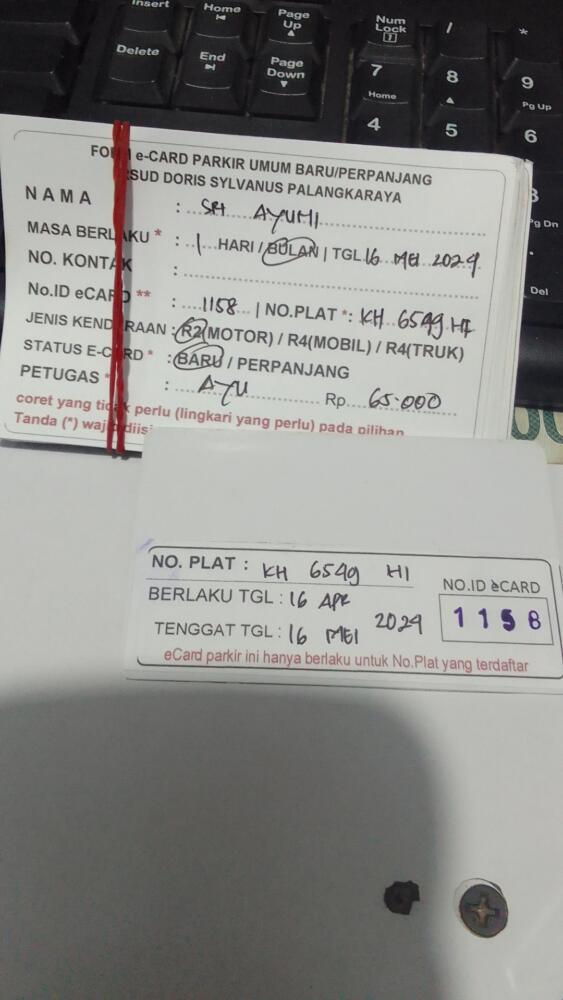 Insert
Home
Page Up
Num Lock
/
*
Delete
End
Page Down
7
Home
8
9
Pg Up
4
5
6
3
Pg Dn
.
Del
e-CARD PARKIR UMUM BARU/PERPANJANG
RSUD DORIS SYLVANUS PALANGKARAYA
NAMA : SRI AYUMI
MASA BERLAKU * : 1 HARI / BULAN | TGL 16 MEI 2024
NO. KONTAK :
No.ID eCARD ** : 1158 | NO.PLAT *: KH 6549 HI
JENIS KENDARAAN : R2(MOTOR) / R4(MOBIL) / R4(TRUK)
STATUS E-CARD * : BARU / PERPANJANG
PETUGAS * : AYU Rp 65.000
coret yang tidak perlu (lingkari yang perlu) pada pilihan
Tanda (*) wajib diis
NO. PLAT : KH 6549 HI
BERLAKU TGL : 16 APR
TENGGAT TGL : 16 MEI 2024
NO.ID eCARD
1158
eCard parkir ini hanya berlaku untuk No.Plat yang terdaftar